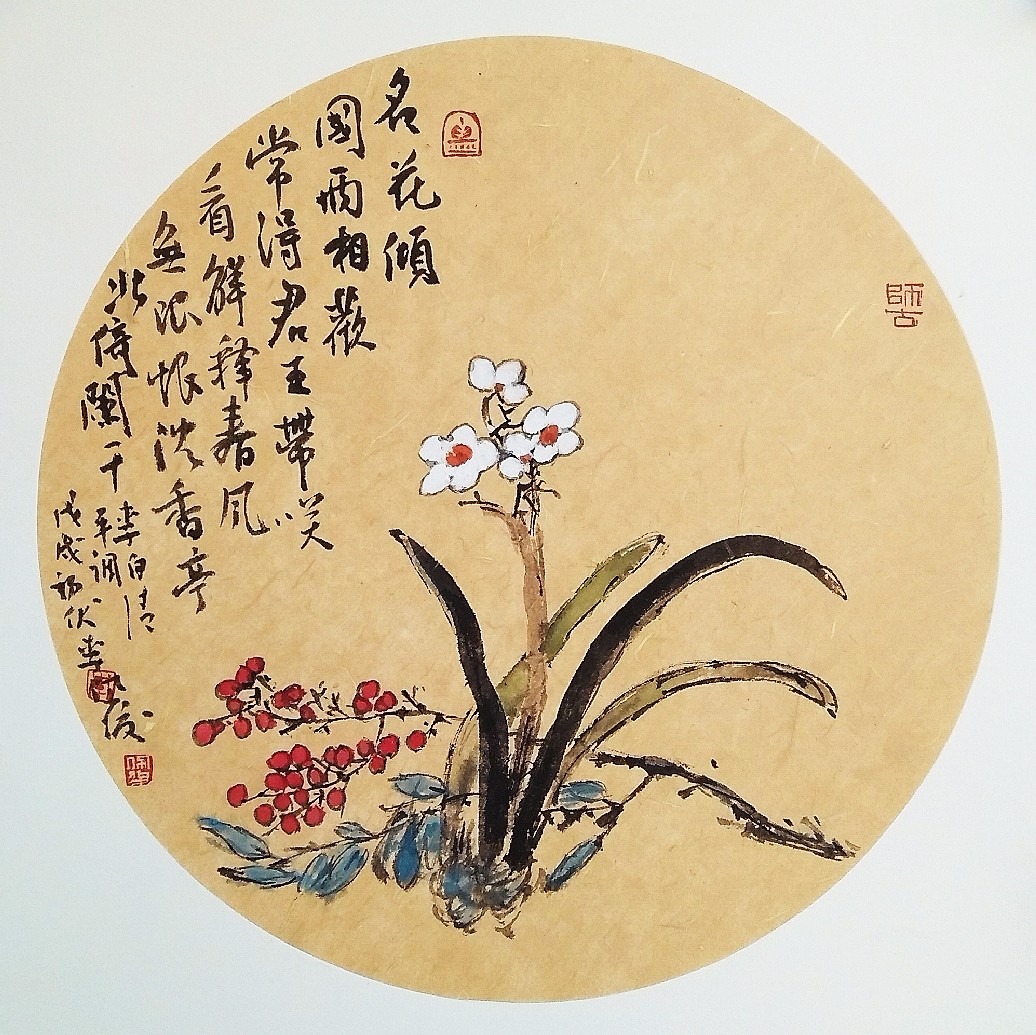 名花傾
國兩相歡
常得君王帶笑
看解释春風
無限恨沈香亭
北倚闌干
李白清
平調
戊戌初伏李
俊
師古